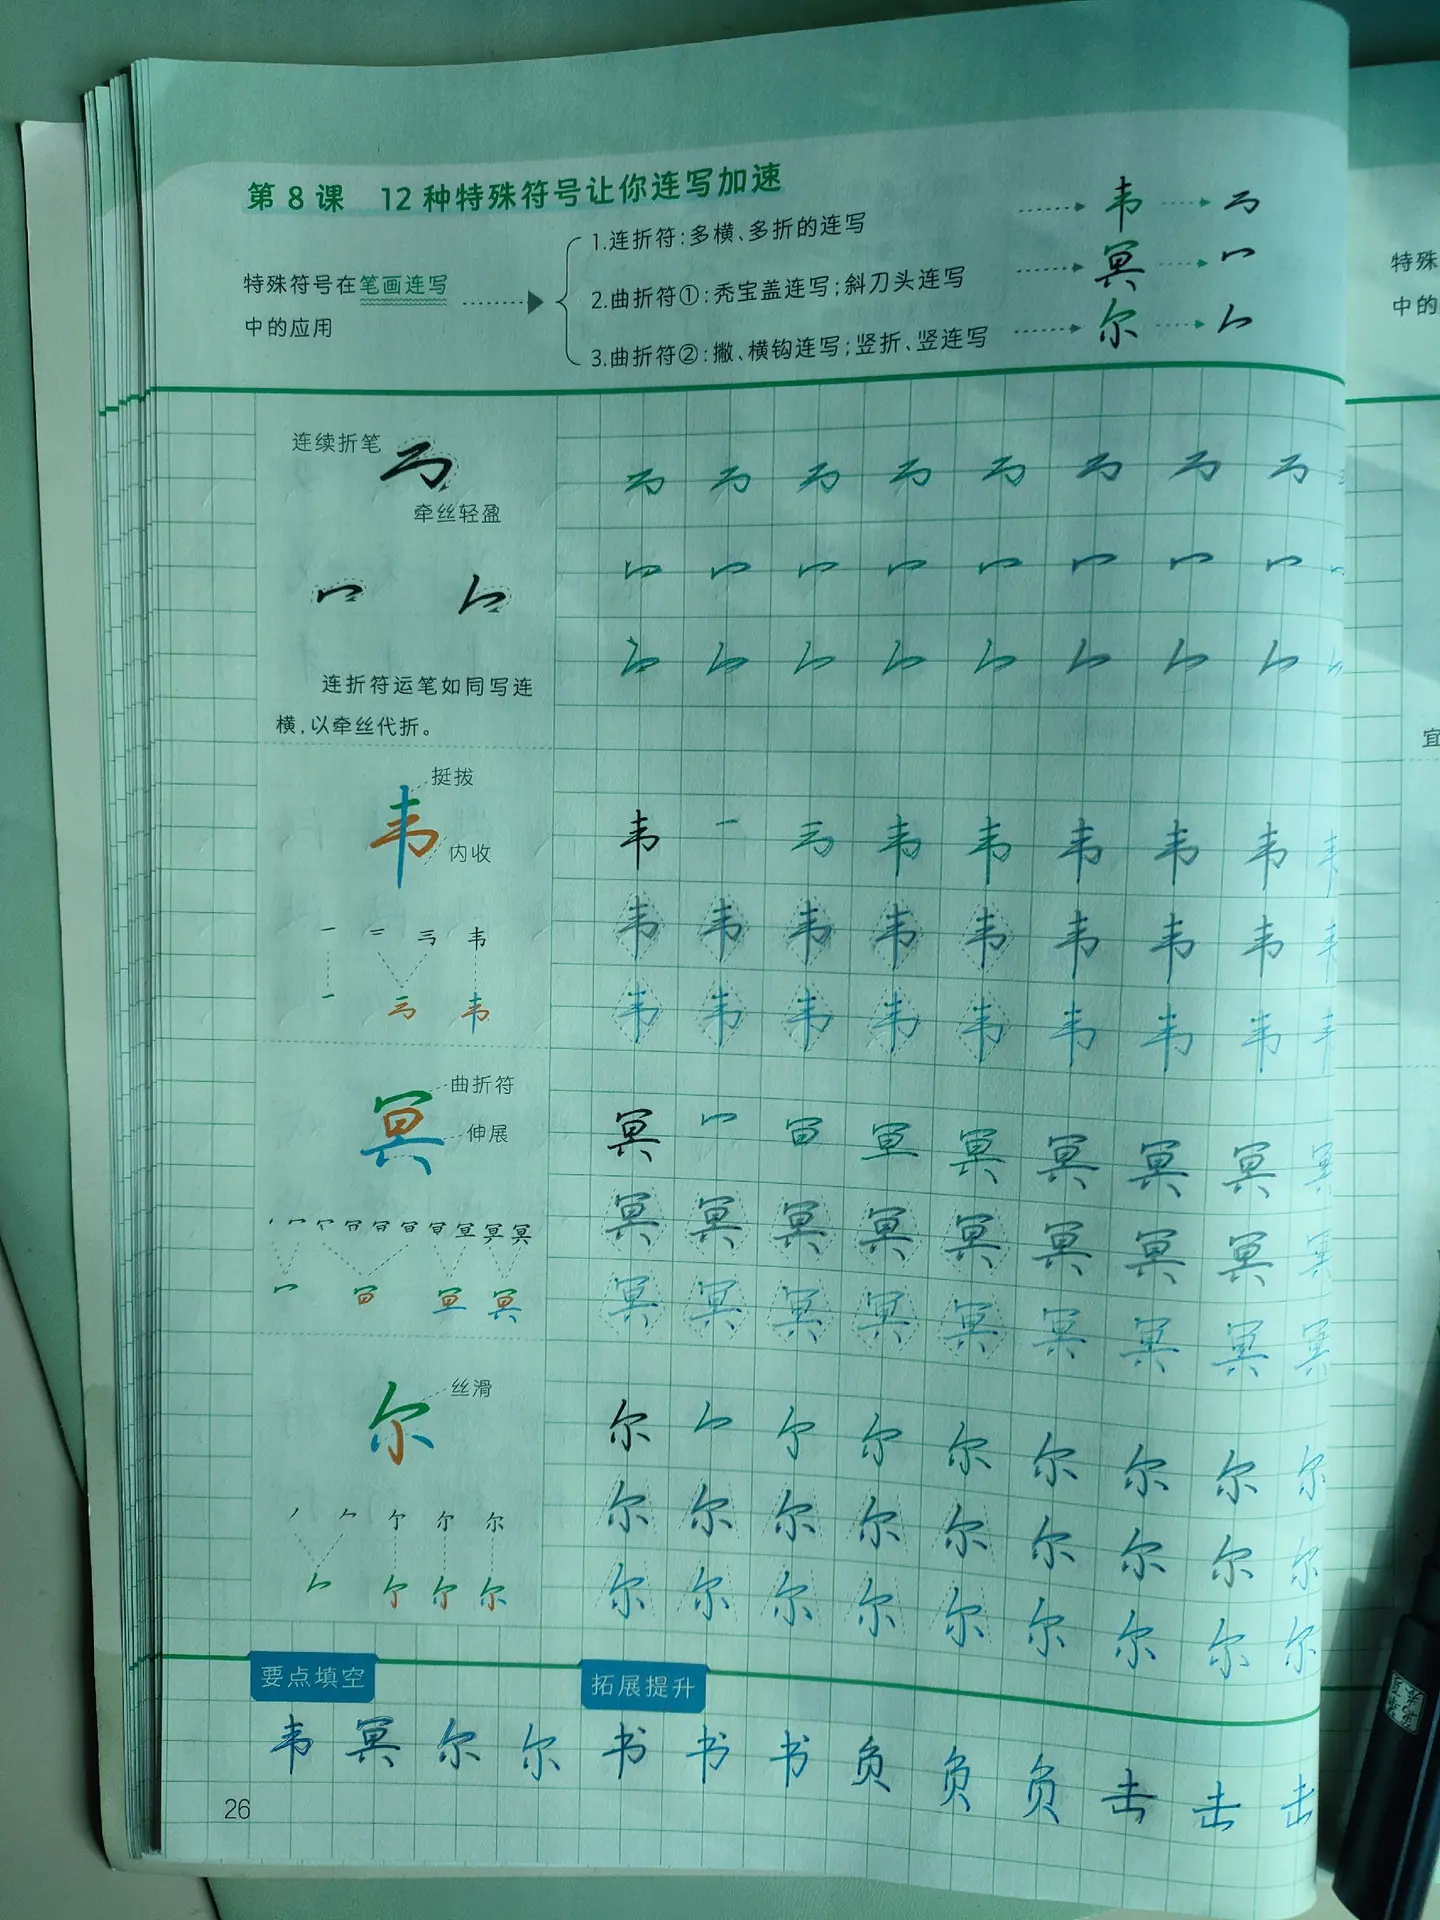 第 8 课　12 种特殊符号让你连写加速
特殊符号在笔画连写
中的应用
1.连折符：多横、多折的连写
2.曲折符①：秃宝盖连写；斜刀头连写
3.曲折符②：撇、横钩连写；竖折、竖连写
韦
冥
尔
连续折笔
牵丝轻盈
连折符运笔如同写连
横，以牵丝代折。
挺拔
韦
内收
韦 一 韦 韦 韦 韦 韦 韦
韦 韦 韦 韦 韦 韦 韦 韦 韦
韦 韦 韦 韦 韦 韦 韦 韦 韦
曲折符
冥
伸展
冥 冖 冥 冥 冥 冥 冥
冥 冥 冥 冥 冥 冥 冥 冥 冥
冥 冥 冥 冥 冥 冥 冥 冥 冥
丝滑
尔
尔 尔 尔 尔 尔 尔 尔
尔 尔 尔 尔 尔 尔 尔 尔 尔
尔 尔 尔 尔 尔 尔 尔 尔 尔
要点填空
拓展提升
韦 冥 尔 尔 书 书 书 负 负 负 击 击 击
26
特殊
中的
宜